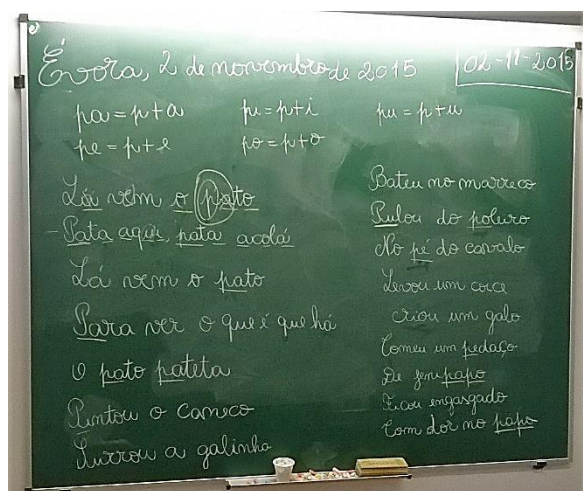 Évora, 2 de novembro de 2015
02-11-2015
pa = p + a
pi = p + i
pu = p + u
pe = p + e
po = p + o
Lá vem o pato
- Pata aqui, pata acolá
Lá vem o pato
Para ver o que é que há
O pato pateta
Pintou o caneco
Surrou a galinha
Bateu no marreco
Pulou do poleiro
No pé do cavalo
Levou um coice
Criou um galo
Comeu um pedaço
De jenipapo
Ficou engasgado
Com dor no papo